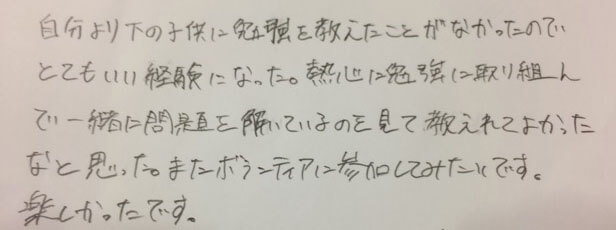 自分より下の子供に勉強を教えたことがなかったので
とてもいい経験になった。熱心に勉強に取り組ん
で一緒に問題を解いているのを見て教えれてよかった
なと思った。またボランティアに参加してみたいです。
楽しかったです。